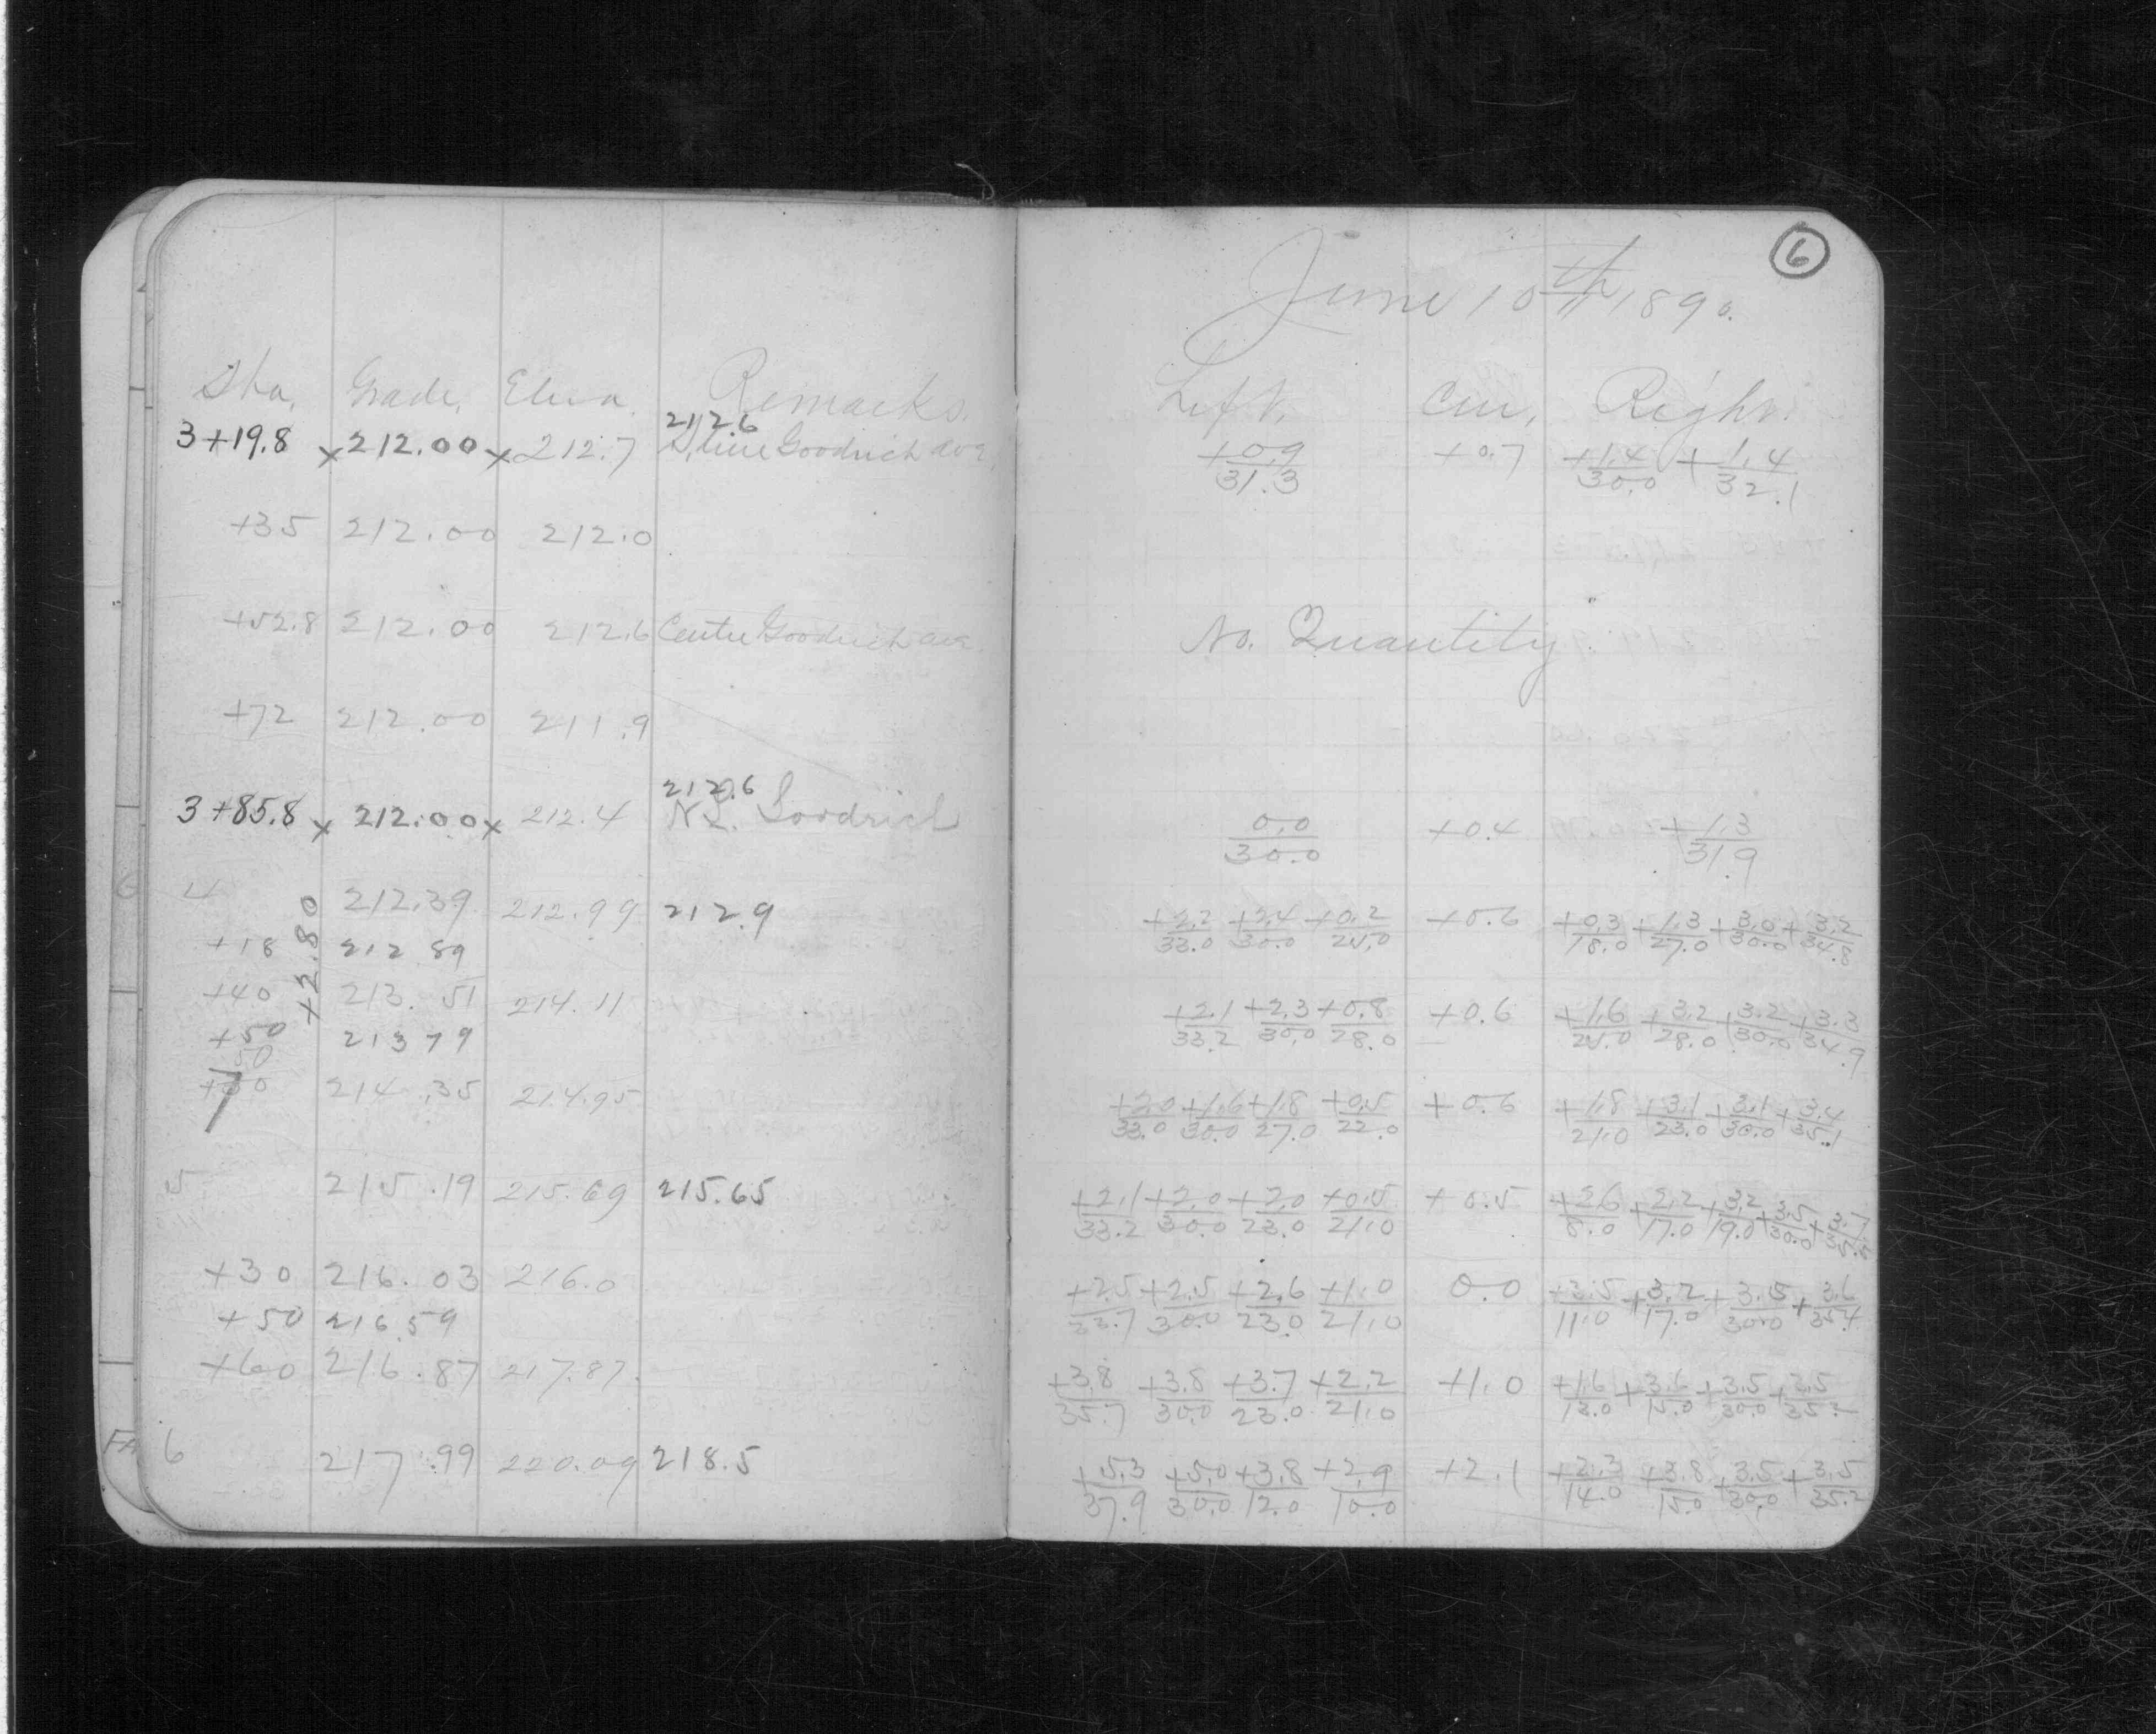 Sta. Grade. Eleva. Remarks.
212.6
3+19.8 x 212.00 x 212.7 S. line Goodrich ave.
+35 212.00 212.0
+52.8 212.00 212.6 Centre Goodrich ave.
+72 212.00 211.9
212.6
3+85.8 x 212.00 x 212.4 N.L. Goodrich
4 212.39 212.99 212.9
+2.80
+18 212 89
+40 213.51 214.11
+50 213 79
50
214.35 214.95
5 215.19 215.69 215.65
+30 216.03 216.0
+50 216.59
+60 216.87 217.87
6 217.99 220.09 218.5
6
June 10th 1890.
Left. Cen. Right.
+0.9/31.3 +0.7 +1.4/30.0 +1.4/32.1
No. Quantity
0.0/30.0 +0.4 +1.3/31.9
+2.2/33.0 +2.4/30.0 +0.2/25.0 +0.6 +0.3/18.0 +1.3/27.0 +3.0/30.0 +3.2/34.8
+2.1/33.2 +2.3/30.0 +0.8/28.0 +0.6 +1.6/25.0 +3.2/28.0 +3.2/30.0 +3.3/34.9
+2.0/33.0 +1.6/30.0 +1.8/27.0 +0.5/22.0 +0.6 +1.8/21.0 +3.1/23.0 +3.1/30.0 +3.4/35.1
+2.1/33.2 +2.0/30.0 +2.0/23.0 +0.5/21.0 +0.5 +2.6/8.0 +2.2/17.0 +3.2/19.0 +3.5/30.0 +3.7/35.5
+2.5/33.7 +2.5/30.0 +2.6/23.0 +1.0/21.0 0.0 +2.5/11.0 +3.2/17.0 +3.5/30.0 +3.6/35.4
+3.8/35.7 +3.8/30.0 +3.7/23.0 +2.2/21.0 +1.0 +1.6/13.0 +3.6/15.0 +3.5/30.0 +3.5/35.2
+5.3/37.9 +5.0/30.0 +3.8/12.0 +2.9/10.0 +2.1 +2.3/14.0 +3.8/15.0 +3.5/30.0 +3.5/35.2